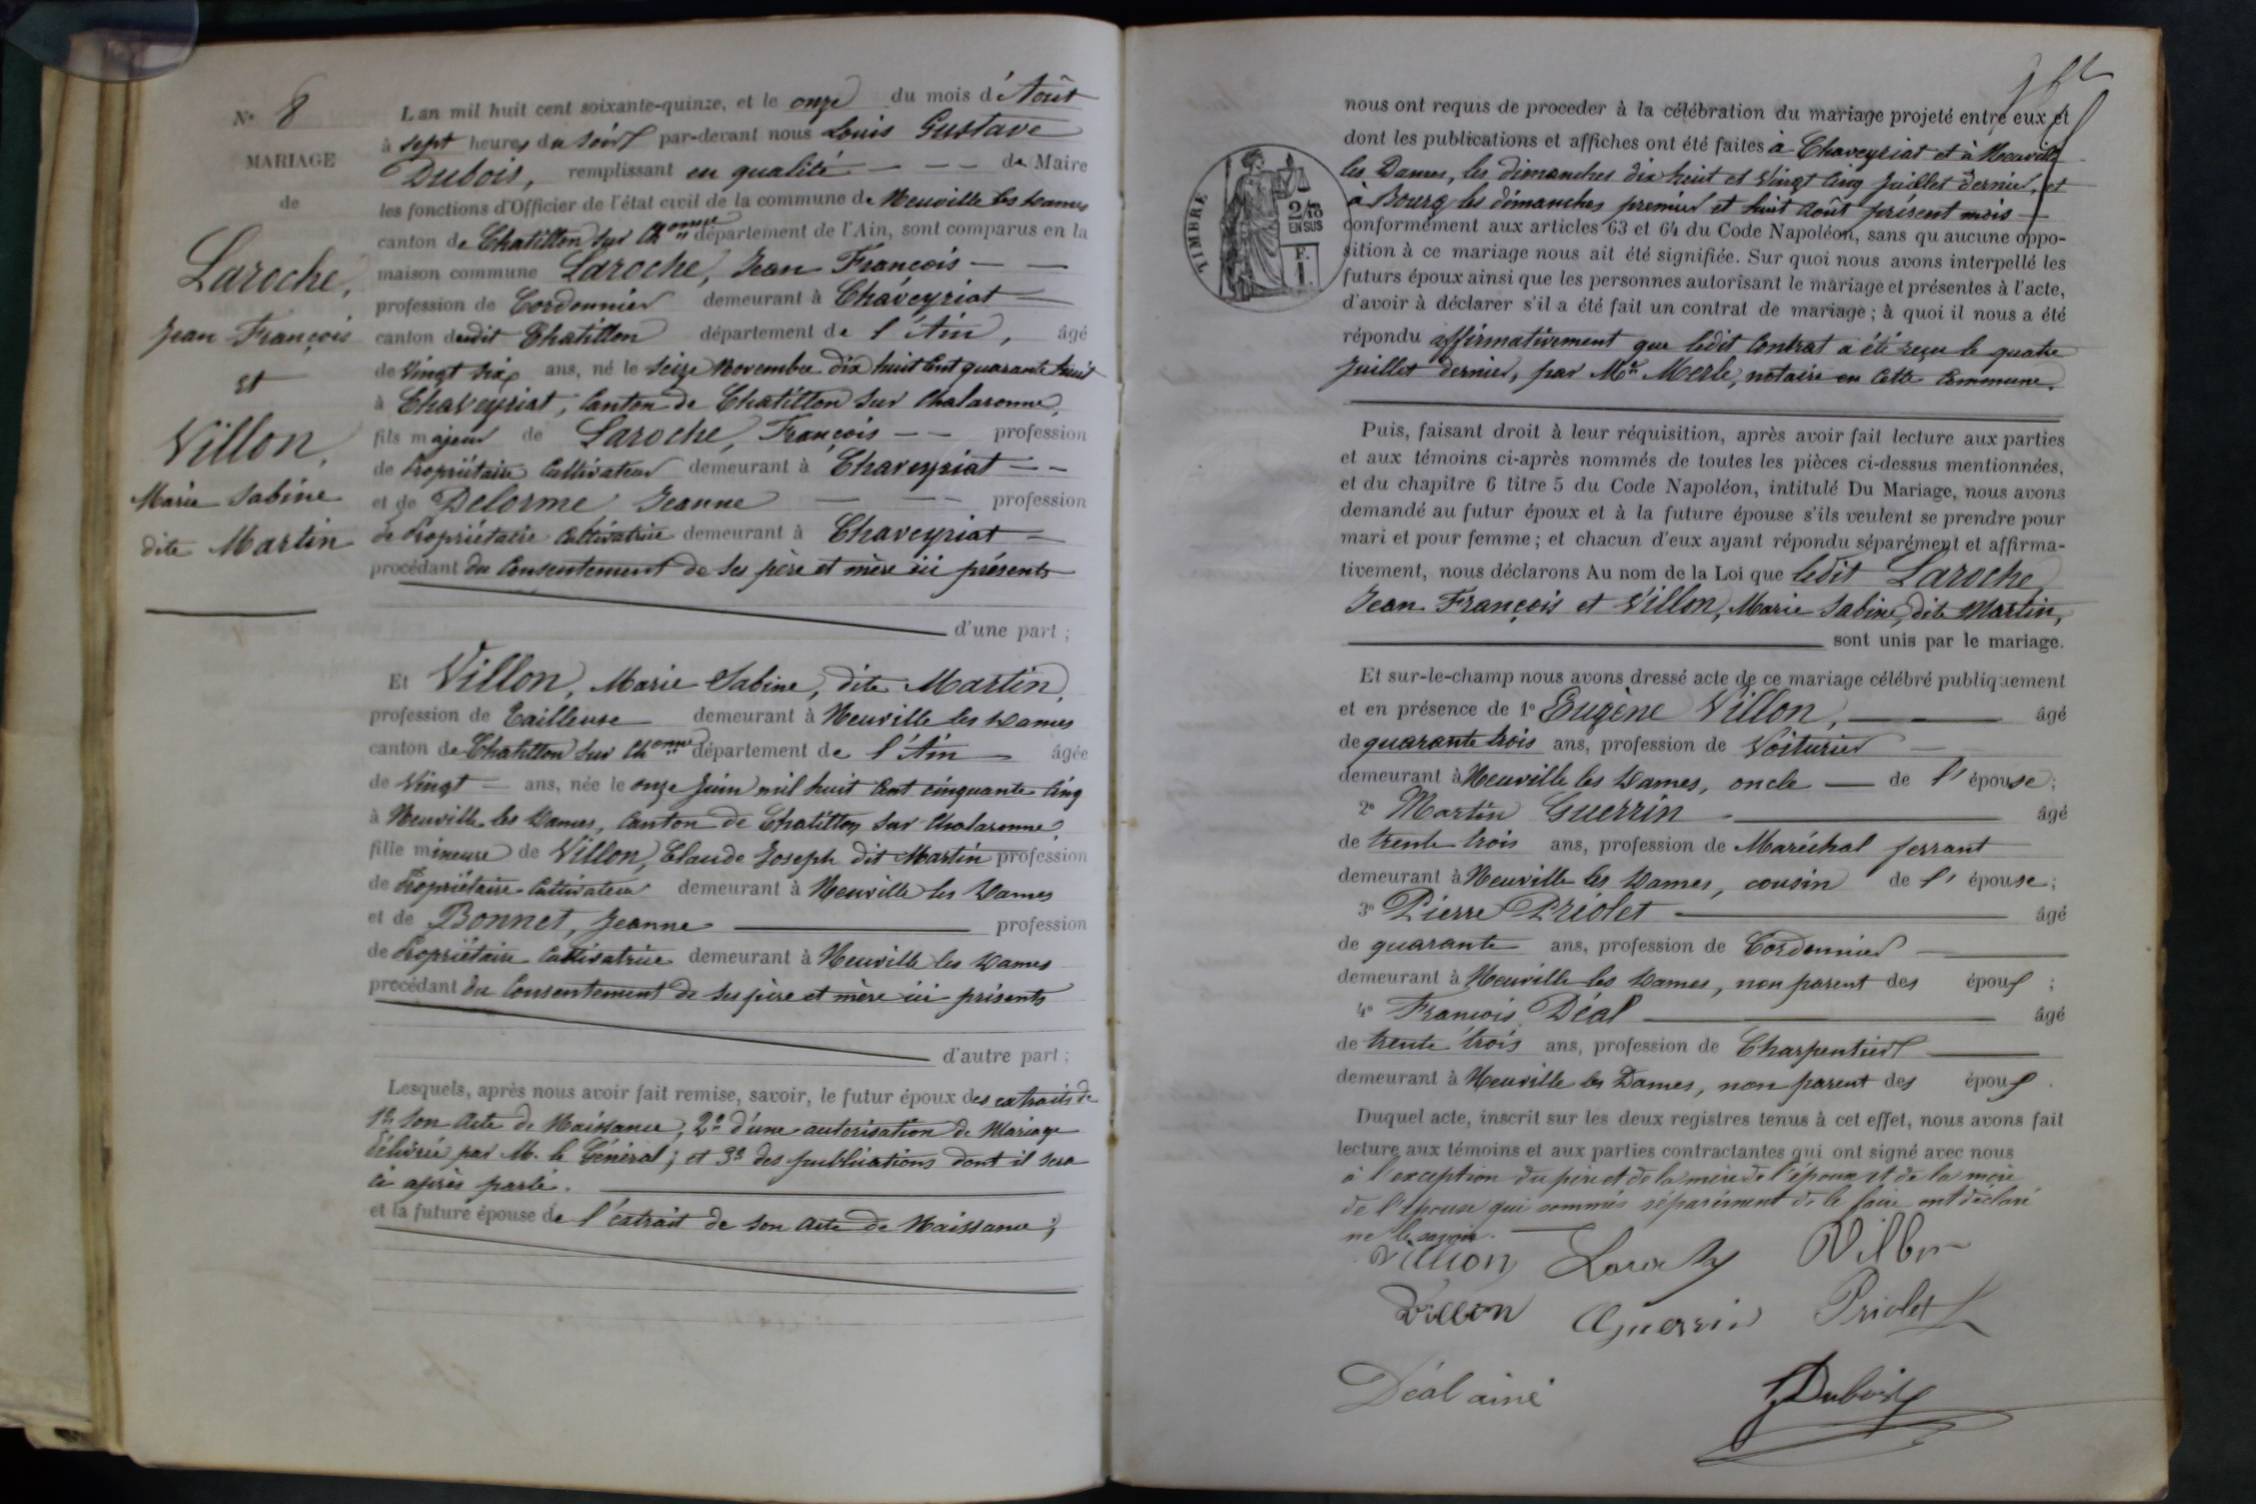 N° 8
MARIAGE
de
Laroche,
Jean François
et
Villon,
Marie Sabine
dite Martin
L'an mil huit cent soixante-quinze, et le onze du mois d'Août
à sept heures du soir par-devant nous Louis Gustave
Dubois, remplissant en qualité — — — de Maire
les fonctions d'Officier de l'état civil de la commune de Neuville les Dames
canton de Chatillon sur Ch.onne département de l'Ain, sont comparus en la
maison commune Laroche, Jean François — —
profession de Cordonnier demeurant à Chaveyriat —
canton dudit Chatillon département de l'Ain, âgé
de Vingt six ans, né le seize Novembre dix huit Cent quarante huit
à Chaveyriat, Canton de Chatillon sur Chalaronne,
fils majeur de Laroche, François — — profession
de Propriétaire Cultivateur demeurant à Chaveyriat — —
et de Delorme Jeanne — — profession
de Propriétaire Cultivatrice demeurant à Chaveyriat —
procédant du Consentement de ses père et mère ici présents
d'une part ;
Et Villon, Marie Sabine, dite Martin,
profession de Tailleuse demeurant à Neuville les Dames
canton de Chatillon sur Ch.onne département de l'Ain — âgée
de Vingt — ans, née le onze Juin mil huit Cent cinquante Cinq
à Neuville les Dames, Canton de Chatillon sur Chalaronne,
fille mineure de Villon, Claude Joseph dit Martin profession
de Propriétaire Cultivateur demeurant à Neuville les Dames
et de Bonnet, Jeanne — profession
de Propriétaire Cultivatrice demeurant à Neuville les Dames
procédant du Consentement de ses père et mère ici présents
d'autre part ;
Lesquels, après nous avoir fait remise, savoir, le futur époux des extraits de
1° son Acte de Naissance, 2° d'une autorisation de Mariage
délivrée par M. le Général ; et 3° des publications dont il sera
ci après parlé. —
et la future épouse de l'extrait de son Acte de Naissance ;
nous ont requis de proceder à la célébration du mariage projeté entre eux et
dont les publications et affiches ont été faites à Chaveyriat et à Neuville
les Dames, les dimanches dix huit et Vingt Cinq Juillet dernier, et
à Bourg les dimanches premier et huit Août présent mois —
conformément aux articles 63 et 64 du Code Napoléon, sans qu'aucune oppo-
sition à ce mariage nous ait été signifiée. Sur quoi nous avons interpellé les
futurs époux ainsi que les personnes autorisant le mariage et présentes à l'acte,
d'avoir à déclarer s'il a été fait un contrat de mariage ; à quoi il nous a été
répondu affirmativement que ledit Contrat a été reçu le quatre
Juillet dernier, par Me Merle, notaire en Cette Commune.
TIMBRE
2/10
EN SUS
F.
1.
Puis, faisant droit à leur réquisition, après avoir fait lecture aux parties
et aux témoins ci-après nommés de toutes les pièces ci-dessus mentionnées,
et du chapitre 6 titre 5 du Code Napoléon, intitulé Du Mariage, nous avons
demandé au futur époux et à la future épouse s'ils veulent se prendre pour
mari et pour femme ; et chacun d'eux ayant répondu séparément et affirma-
tivement, nous déclarons Au nom de la Loi que ledit Laroche
Jean François et Villon, Marie Sabine, dite Martin,
sont unis par le mariage.
Et sur-le-champ nous avons dressé acte de ce mariage célébré publiquement
et en présence de 1° Eugène Villon, — — âgé
de quarante trois ans, profession de Voiturier —
demeurant à Neuville les Dames, oncle — de l'épouse ;
2° Martin Guerrin — âgé
de trente trois ans, profession de Maréchal ferrant
demeurant à Neuville les Dames, cousin de l'épouse ;
3° Pierre Priolet — âgé
de quarante ans, profession de Cordonnier —
demeurant à Neuville les Dames, non parent des époux ;
4° François Déal — âgé
de trente trois ans, profession de Charpentier —
demeurant à Neuville les Dames, non parent des époux .
Duquel acte, inscrit sur les deux registres tenus à cet effet, nous avons fait
lecture aux témoins et aux parties contractantes qui ont signé avec nous
à l'exception du père et de la mère de l'époux et de la mère
de l'épouse qui sommés séparément de le faire ont déclaré
ne le savoir. —
Villion Laroche Villon
Villon Guerrin Priolet
Déal ainé G Dubois